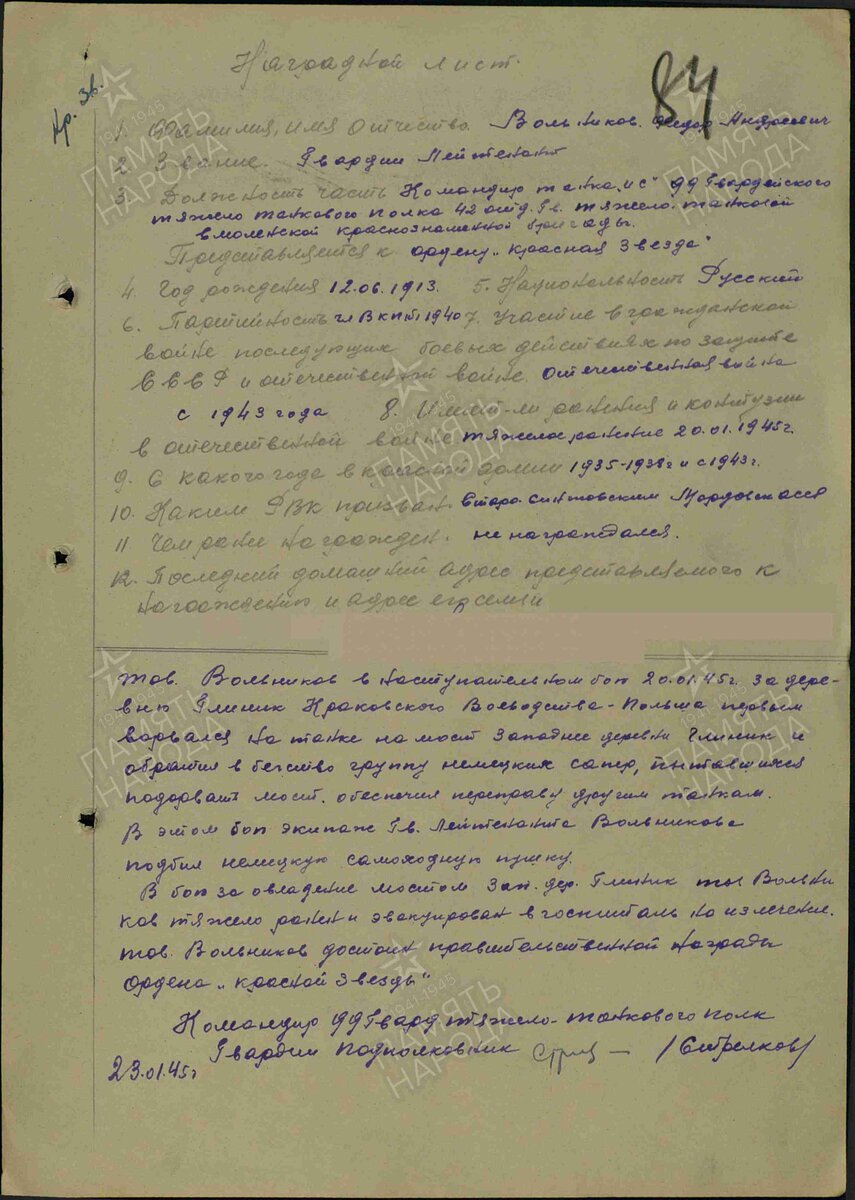 Наградной лист.
84
Кр. Зв.
1. Фамилия, имя отчество Вольников Федор Андреевич
2. Звание. Гвардии Лейтенант
3. Должность часть Командир танка „ИС" 99 Гвардейского
тяжело танкового полка 42 отд. Гв. тяжело-танковой
Смоленской краснознаменной бригады.
Представляется к ордену „Красная Звезда"
4. Год рождения 12.06.1913. 5. Национальность Русский
6. Партийность чл ВКПб 1940 7. Участие в гражданской
войне последующих боевых действиях по защите
СССР и отечественной войне. Отечественная война
с 1943 года 8. Имеет-ли ранения и контузии
в отечественной войне тяжелое ранение 20.01.1945г.
9. С какого года в красной армии 1935-1938г и с 1943г.
10. Каким РВК призван Мордовская
11. Чем ранее награжден. не награждался.
12. Последний домашний адрес представляемого к
награждению и адрес его семьи
тов. Вольников в наступательном бою 20.01.45г. за дерев-
ню Глиник Краковского Воеводства - Польша первым
ворвался на танке на мост западнее деревни Глиник и
обратил в бегство группу немецких сапер, пытавшихся
подорвать мост, обеспечил переправу другим танкам.
В этом бою экипаж Гв. Лейтенанта Вольникова
подбил немецкую самоходную пушку.
В бою за овладение мостом зап. дер. Глиник тов Вольни
ков тяжело ранен и эвакуирован в госпиталь на излечение.
тов. Вольников достоин правительственной награды
Ордена „Красной Звезды"
Командир 99 Гвард тяжело-танкового полк
Гвардии подполковник /Стрелков/
23.01.45г